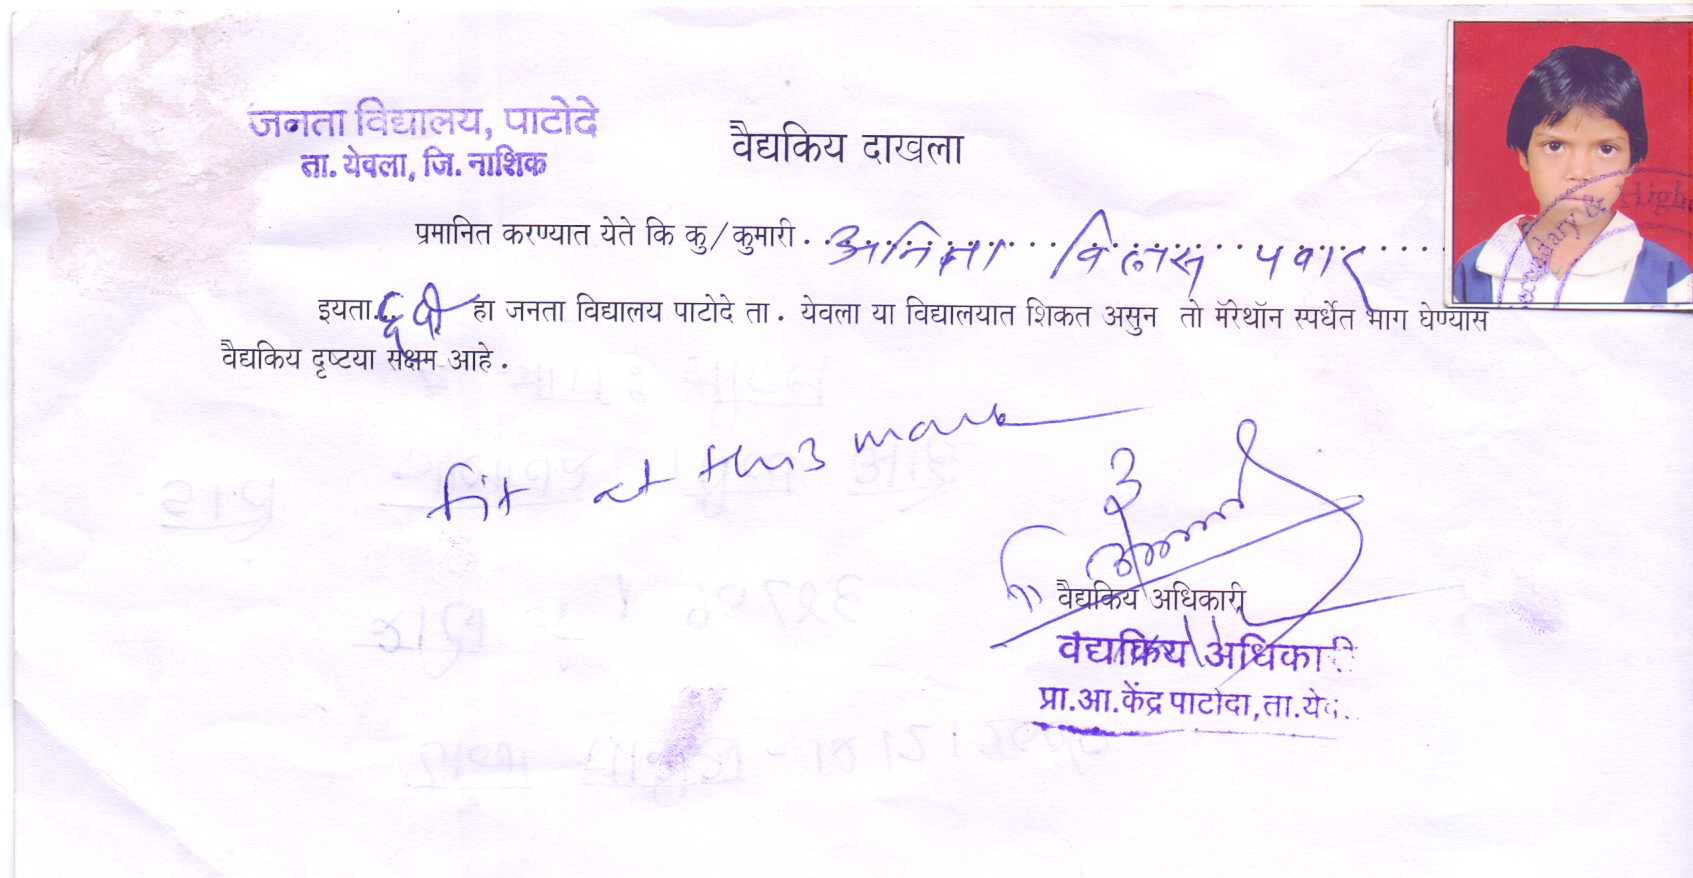 जनता विद्यालय, पाटोदे
ता. येवला, जि. नाशिक
वैद्यकिय दाखला
प्रमानित करण्यात येते कि कु/कुमारी . अनिता विलास पवार
इयता. ६ वी हा जनता विद्यालय पाटोदे ता . येवला या विद्यालयात शिकत असुन तो मॅरेथॉन स्पर्धेत भाग घेण्यास
वैद्यकिय दृष्टया सक्षम आहे .
ndary & High
fit at this mark
वैद्यकिय अधिकारी
वैद्यकिय अधिकारी
प्रा.आ.केंद्र पाटोदा, ता.ये